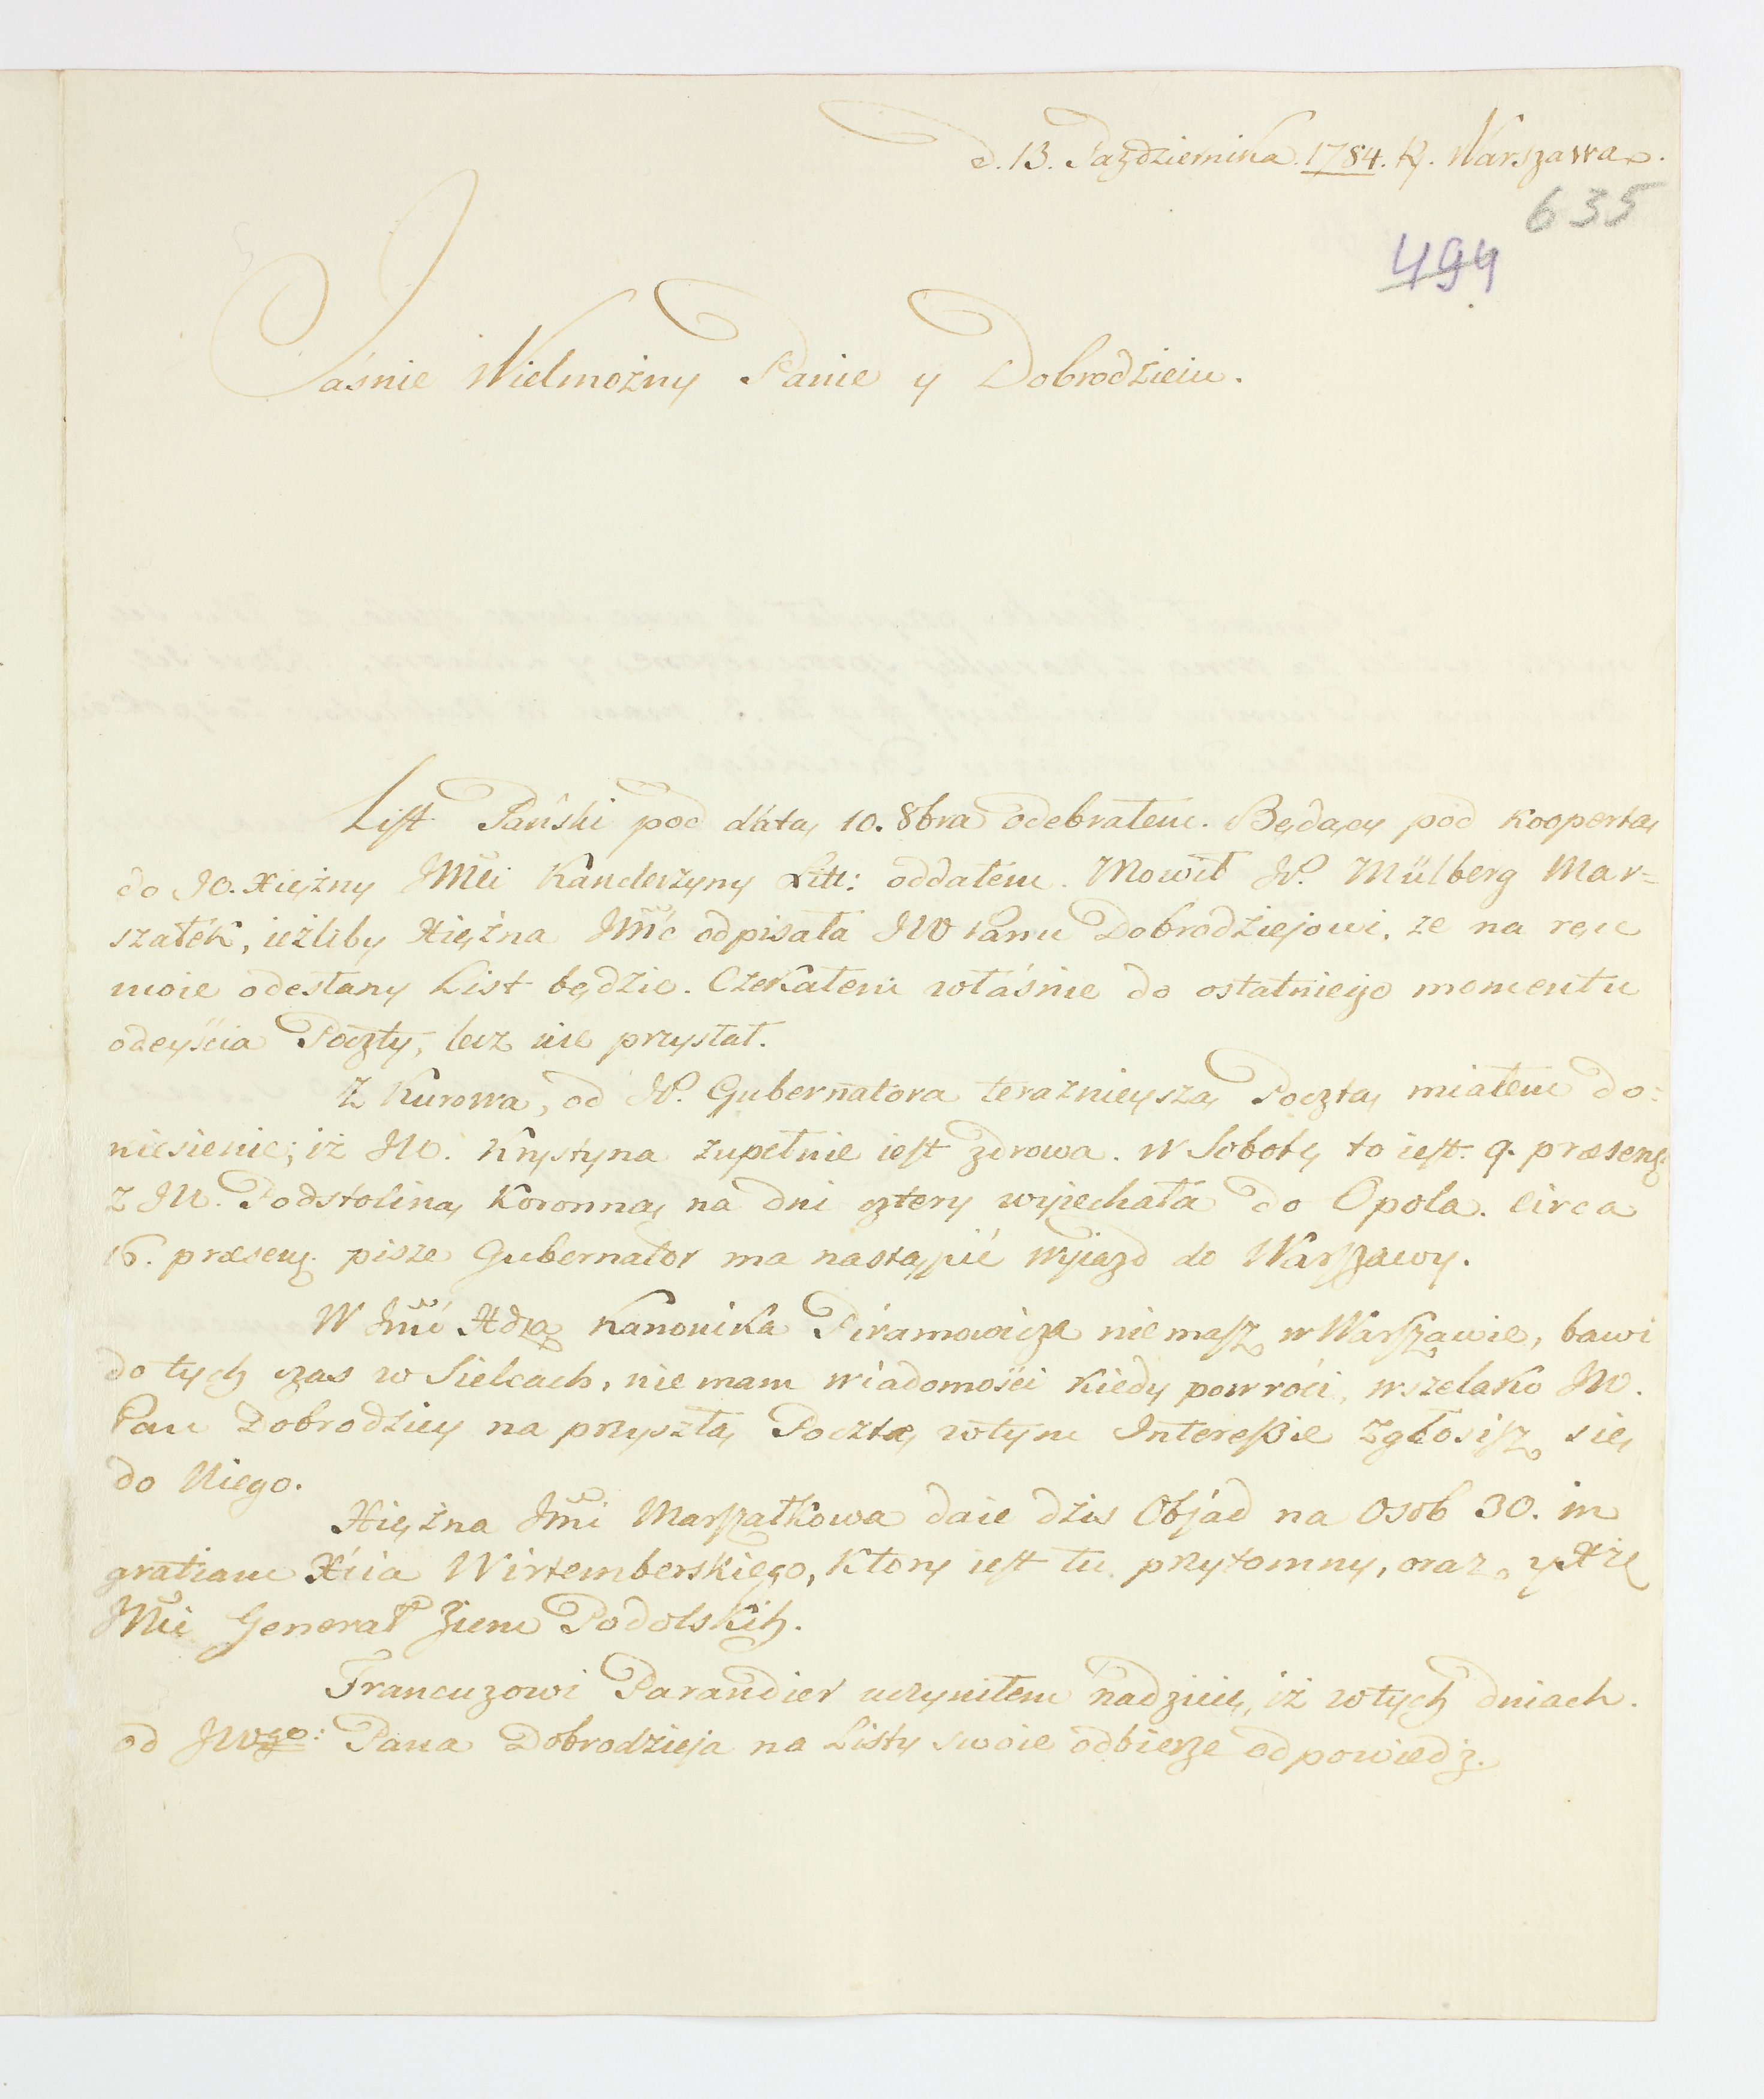 d. 13. Pazdziernika. 1784. R. Warszawa.
635
494
Jaśnie Wielmożny Panie y Dobrodzieiu.
List Pański pod datą 10. 8bra odebrałem. Będący pod kopertą
do JO. Xiężny JMci Kanclerzyny Litt: oddałem. Mowił W. Mülberg Mar=
szałek, ieżliby Xiężna Jmć odpisała JW Panu Dobrodziejowi, ze na ręce
moie odesłany List będzie. Czekałem właśnie do ostatniego momentu
odeyścia Poczty, lecz nie przysłał.
Z Kurowa, od W. Gubernatora teraznieyszą Pocztą miałem do=
niesienie; iż JW. Krystyna zupełnie iest zdrowa. W Sobotę to iest. 9. præsen.
z JW. Podstoliną Koronną na dni cztery wyiechała do Opola. circa
16. præsen. pisze Gubernator ma nastąpić wyiazd do Warszawy.
W Jmć Xdza Kanonika Piramowicza nie masz w Warszawie, bawi
do tych czas w Sielcach, nie mam wiadomości kiedy powróci, wszelako JW.
Pan Dobrodziey na przyszłą Pocztę w tym Interessie zgłosisz się
do Niego.
Xiężna Jmci Marszałkowa daie dzis Objad na Osob 30. in
gratiam Xcia Wirtemberskiego, ktory iest tu przytomny, oraz y Xże
JMci Generał Ziem Podolskich.
Francuzowi Parandier uczyniłem nadzieię, iż w tych dniach.
od JWgo: Pana Dobrodzieja na Listy swoie odbierze odpowiedz.